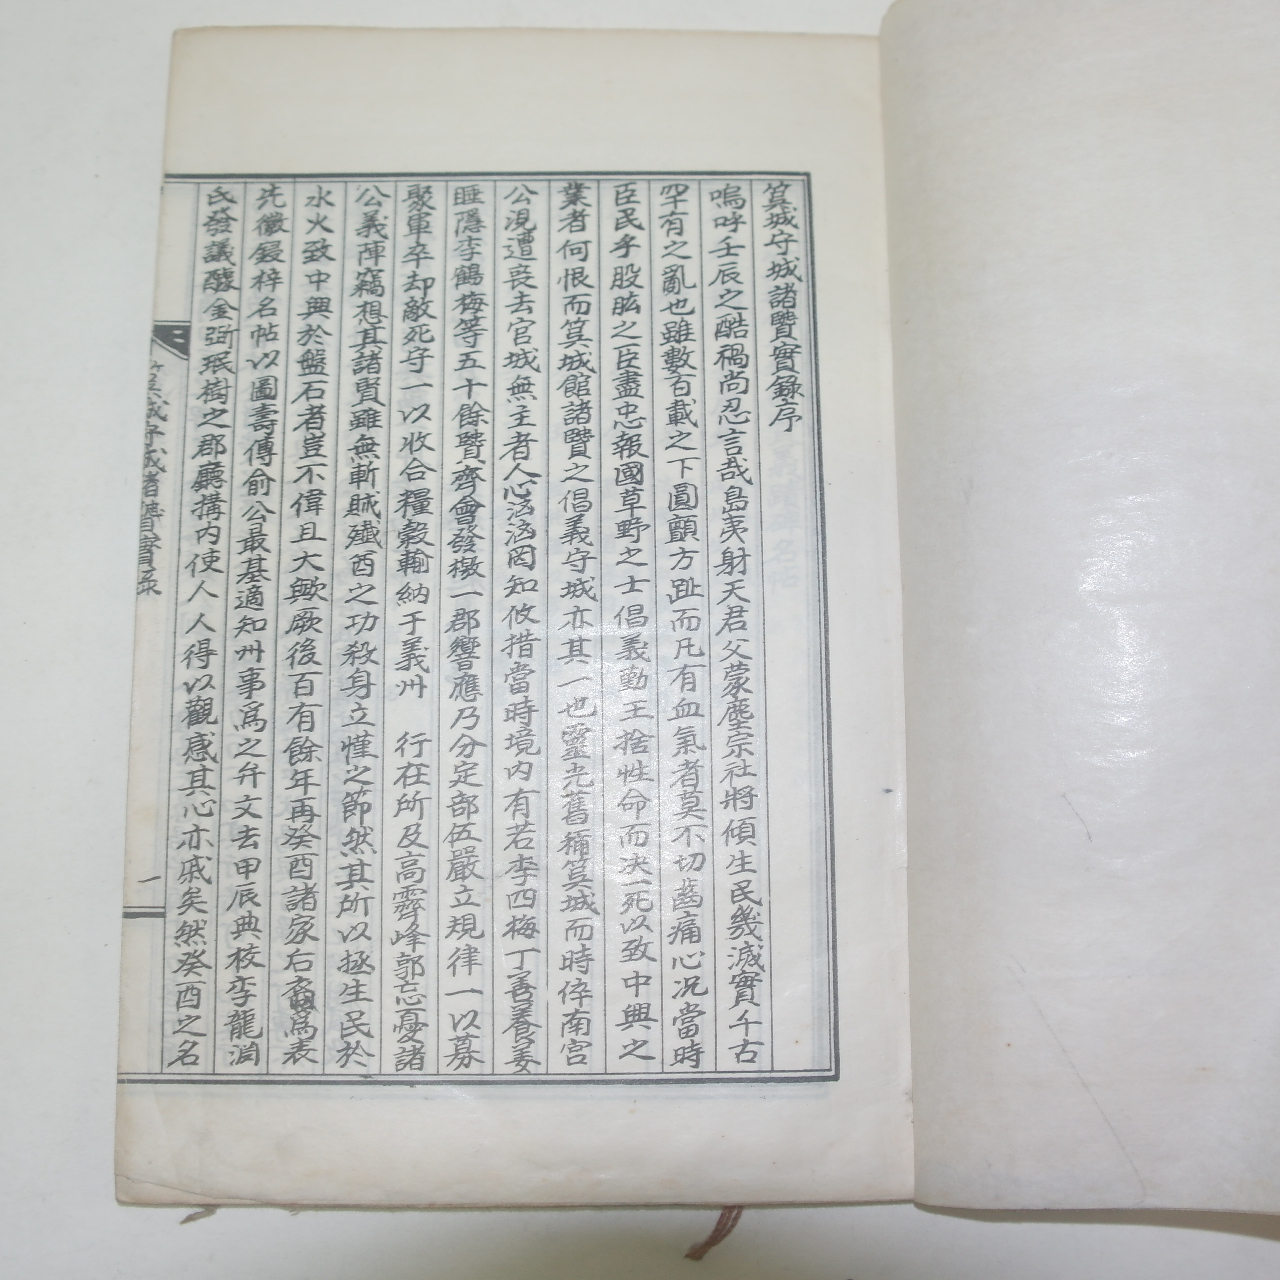 筽城守城諸贒實錄序
嗚呼壬辰之酷禍尚忍言哉島夷射天君父蒙塵宗社將傾生民幾滅實千古
罕有之亂也雖數百載之下圓顱方趾而凡有血氣者莫不切齒痛心況當時
臣民乎股肱之臣盡忠報國草野之士倡義勤王捨性命而决一死以致中興之
業者何恨而筽城館諸贒之倡義守城亦其一也靈光舊稱筽城而時倅南宮
公涀遭喪去官城無主者人心汹汹罔知攸措當時境內有若李四梅丁善養姜
睡隱李鶴梅等五十餘贒齊會發檄一郡響應乃分定部伍嚴立規律一以募
聚軍卒却敵死守一以收合糧穀輸納于義州 行在所及高霽峰郭忘憂諸
公義陣竊想其諸賢雖無斬賊殲酋之功殺身立慬之節然其所以拯生民於
水火致中興於盤石者豈不偉且大歟厥後百有餘年再癸酉諸家后裔爲表
先徽鋟梓名帖以圖壽傳俞公最基適知州事爲之弁文去甲辰典校李龍淵
氏發議醵金竪珉樹之郡廳構內使人人人得以觀感其心亦戚矣然癸酉之名
筽城守城諸贒實錄
一